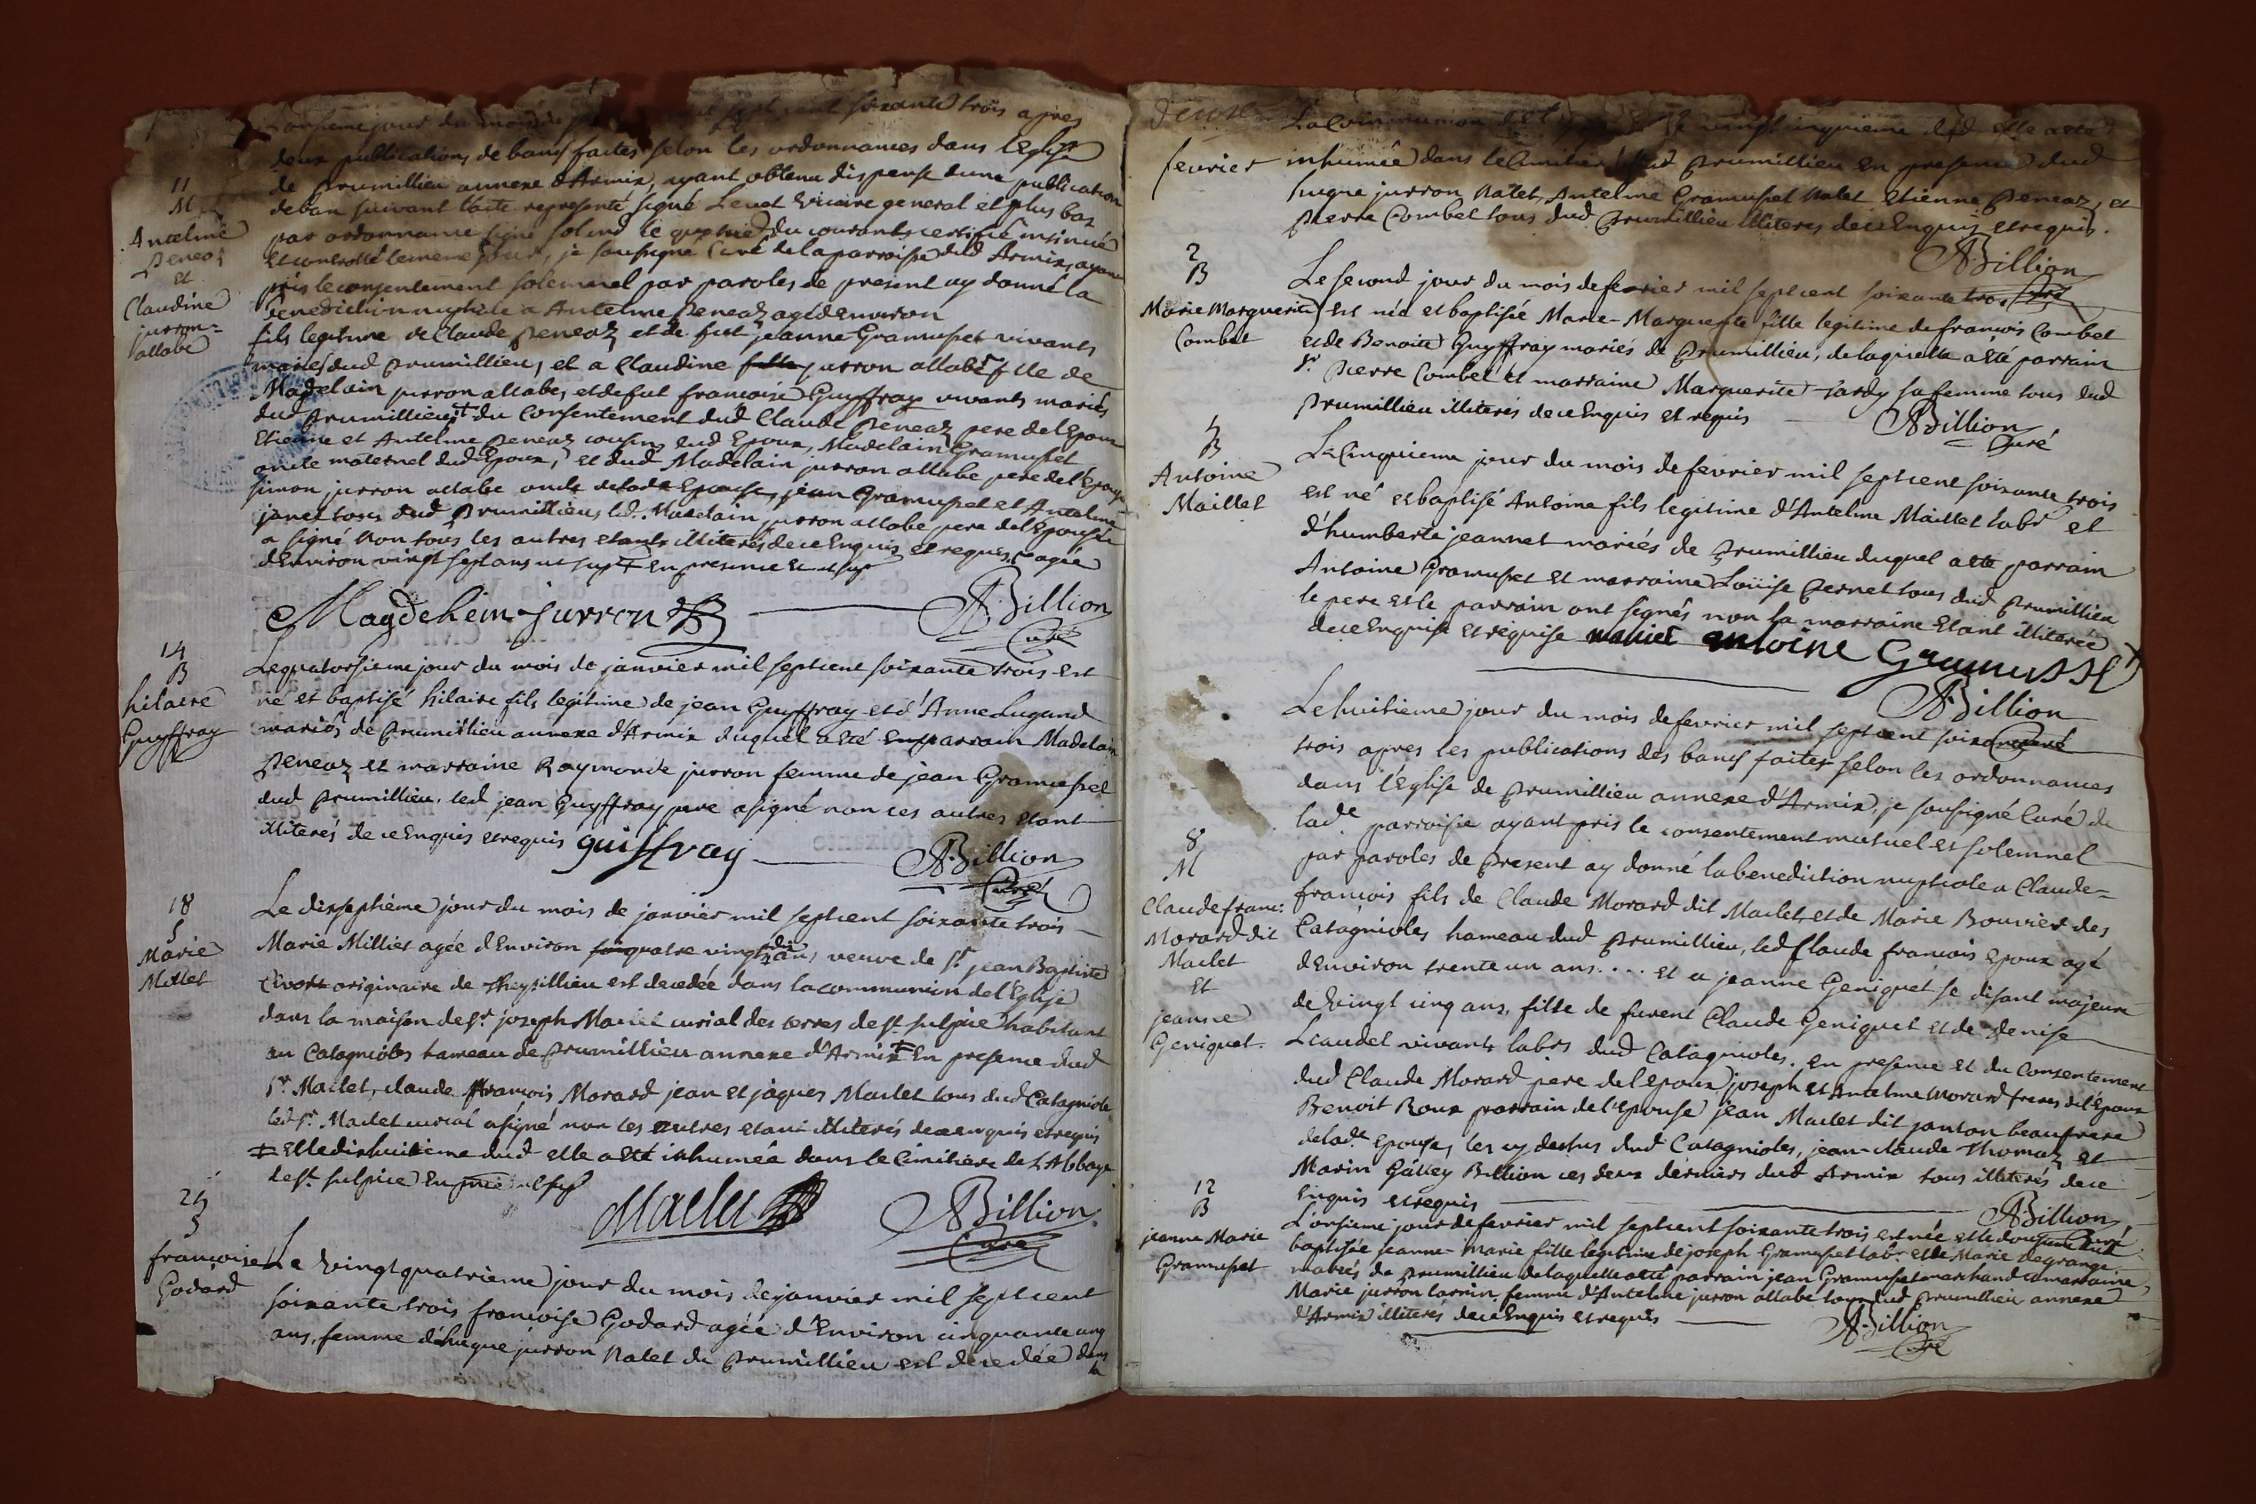 onsieme jour du mois de sept cent soixante trois apres
deux publications de bans faites selon les ordonnances dans l'Eglise
de prumillieu annexe d'Armix, ayant obtenu dispense d'une publication
de ban suivant l'acte represente signé vicaire general et plus bas
par ordonnance signé du courant certifié insinué
et controllé le meme jour, je soussigné Curé de la parroisse dud Armix, ayant
pris le consentement solemnel par paroles de present ay donné la
benediction nuptiale a Antelme peneaz agé d'environ
fils legitime de Claude peneaz et de fut jeanne Gramuset vivants
mariés dud prumillieu, et a Claudine jurron allabe fille de
Madelain jurron allabe, et de fut francoise Guyffray vivants mariés
dud prumillieu, du Consentement dud Claude peneaz pere de l'Epoux
Etienne et Antelme peneaz cousins dud Epoux, Madelain Gramuset
oncle maternel dud Epoux, et dud Madelain jurron allabe pere de l'Epouse
simon jurron allabe oncle de lade Epouse, jean Gramuset et Antelme
janet tous dud prumillieu, led. Madelain jurron allabe pere de l'Epouse
a signé non tous les autres etants illiterés de ce Enquis et requis, agée
d'Environ vingt sept ans ut sup En presence et ut sup
Magdelein jurron
A. Billion
Curé
11
M
Antelme
Peneaz
et
Claudine
jurron=
allabe
14
B
hilaire
Guyffray
Le quatorsieme jour du mois de janvier mil sept cent soixante trois est
né et baptisé hilaire fils legitime de jean Guyffray et d'Anne Lugand
mariés de prumillieu annexe d'Armix duquel a eté parrain Madelain
peneaz et marraine Raymonde jurron femme de jean Gramuset
dud prumillieu. led jean Guyffray pere a signé non les autres etant
illiterés de ce Enquis et requis guiffray
A. Billion
Curé
18
S
Marie
Millet
Le dixseptième jour du mois de janvier mil sept cent soixante trois
Marie Millier agée d'Environ quatre vingt dix ans, veuve de Sr jean Baptiste
originaire de Theysillieu est decedée dans la communion de l'Eglise
dans la maison de Sr joseph Maclet curial des terres de St sulpice habitant
au Catagnioles hameau de prumillieu annexe d'Armix En presence dud
Sr Maclet, claude françois Morard jean et jaques Maclet tous dud Catagnioles
led Sr Maclet curial a signé non les autres etant illiterés de ce enquis et requis
Et le dixhuitieme dud elle a eté inhumée dans le Cimitiere de L'Abbaye
de St sulpice En pnce ut sup
Maclet
A Billion
Curé
24
S
francoise
Godard
Le vingt quatrieme jour du mois de janvier mil sept cent
soixante trois francoise Godard agée d'Environ cinquante cinq
ans, femme d'hugue jurron Natet du prumillieu est decedée dans
la
La Communion vingt cinquieme dud elle a eté
fevrier
inhumée dans le Cimitiere dud prumillieu En presence dud
hugue jurron Natet, Antelme Gramuset Natet Etienne peneaz, et
pierre Combet tous dud prumillieu illiteres de ce Enquis et requis.
A. Billion
Curé
2
B
Marie Marguerite
Combet
Le second jour du mois de fevrier mil sept cent soixante trois
est née et baptisée Marie-Marguerite fille legitime de francois Combet
et de Benoite Guyffray mariés de prumillieu, de laquelle a eté parrain
Sr pierre Combet et marraine Marguerite Tardy sa femme tous dud
prumillieu illiterés de ce Enquis et requis
A Billion
Curé
5
B
Antoine
Maillet
Le Cinquieme jour du mois de fevrier mil sept cent soixante trois
est né et baptisé Antoine fils legitime d'Antelme Maillet labr et
d'humberte jeannet mariés de prumillieu duquel a eté parrain
Antoine Gramuset et marraine Louise Pernet tous dud prumillieu
le pere et le parrain ont signés non la marraine etant illiterée
de ce Enquise et requise maliet antoine Gramusset
A Billion
Curé
8
M
Claude franc:
Morard dit
Maclet
et
jeanne
Geniguet.
Le huitieme jour du mois de fevrier mil sept cent soixante
trois apres les publications des bans faites selon les ordonnances
dans l'Eglise de prumillieu annexe d'Armix, je soussigné Curé de
lade parroisse ayant pris le consentement mutuel et solemnel
par paroles de present ay donné la benediction nuptiale a Claude=
francois fils de Claude Morard dit Maclet, et de Marie Bouvier des
Catagnioles hameau dud prumillieu, led Claude francois epoux agé
d'environ trente un ans.... et a jeanne Geniguet se disant majeure
de vingt cinq ans, fille de furent Claude Geniguet et de Denise
Leaudet vivants labrs dud Catagnioles. en presence et du Consentement
dud Claude Morard pere de l'epoux joseph et Antelme Morard freres de l'Epoux
Benoit Roux parrain de l'epouse jean Maclet dit janton beaufrere
de lade epouse, les cy dessus dud Catagnioles, jean-claude Thomaz et
Marin Galley Billion ces deux derniers dud Armix tous illiterés de ce
Enquis et requis
A Billion
Curé
12
B
jeanne Marie
Gramuset
L'onsieme jour de fevrier mil sept cent soixante trois est née et le douzieme dud
baptisée jeanne-marie fille legitime de joseph Gramuset labr et de Marie Degrange
mariés de prumillieu de laquelle a eté parrain jean Gramuset marchand et marraine
Marie jurron femme d'Antelme jurron allabe tous dud prumillieu annexe
d'Armix illiterés de ce Enquis et requis
A. Billion
Curé